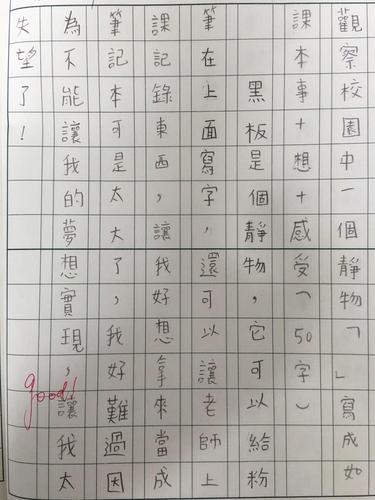 觀察校園中一個靜物「」寫成如
課本事+想+感受（50字）
黑板是個靜物，它可以給粉
筆在上面寫字，還可以讓老師上
課記錄東西，讓我好想拿來當成
筆記本可是太大了，我好難過因
為不能讓我的夢想實現，讓我太
失望了！
good!